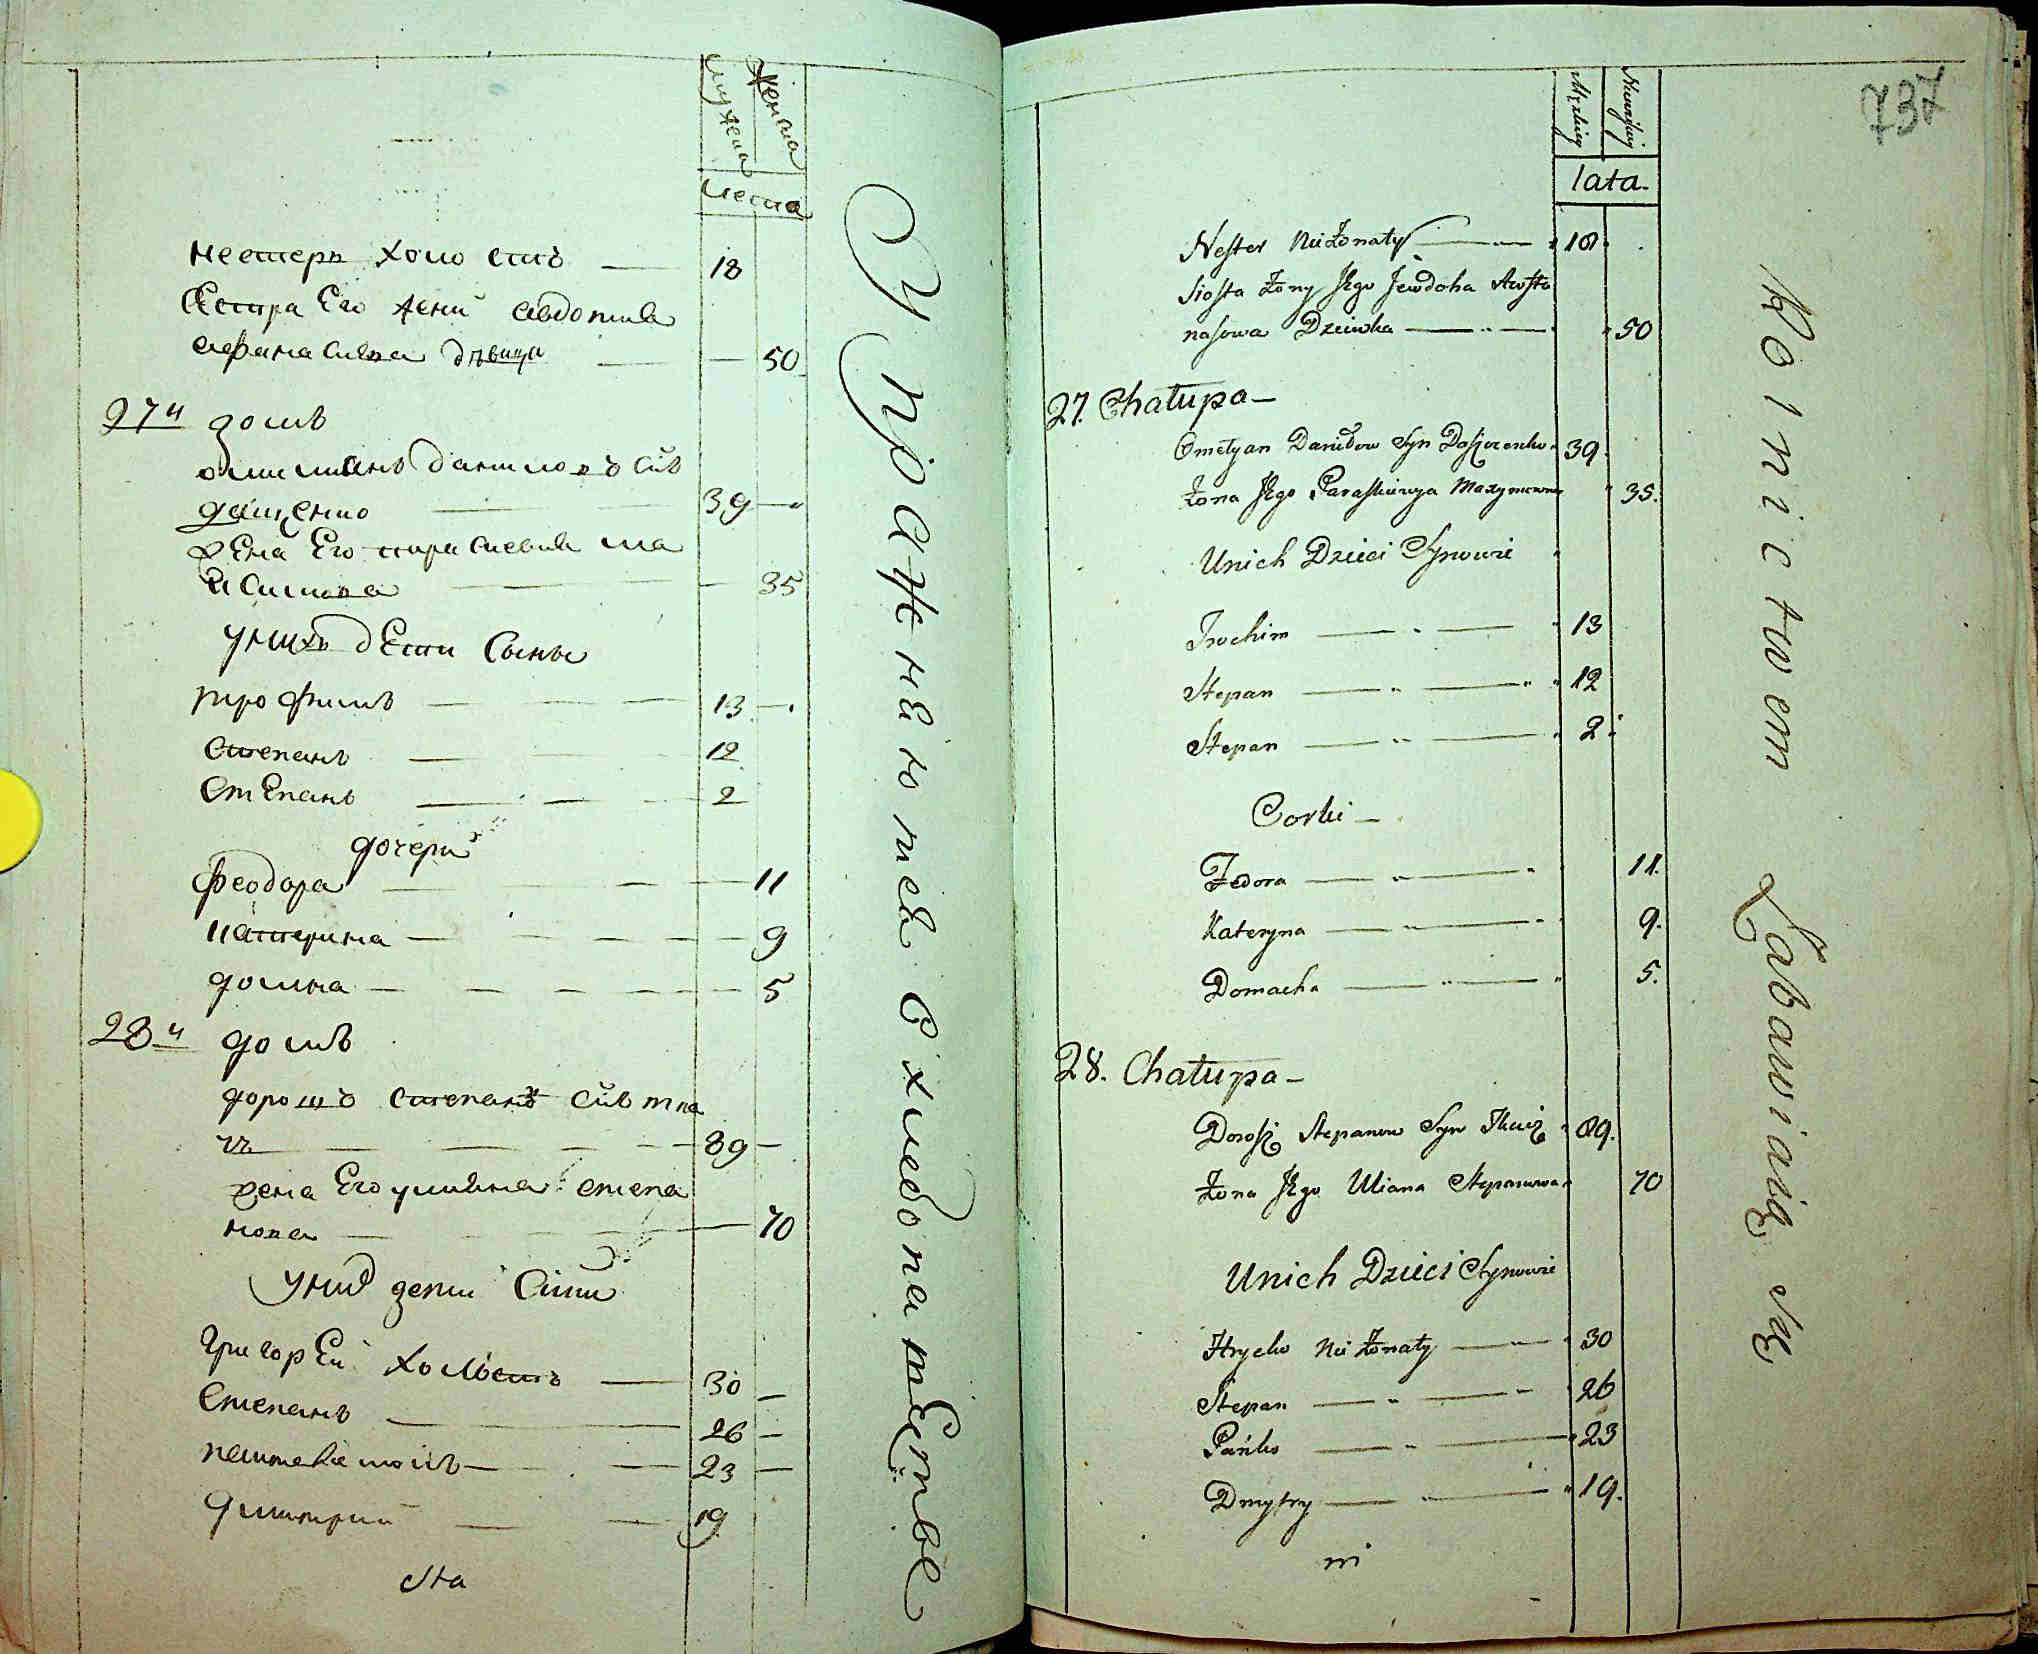 мужеска
женска
лета
нестеръ холостъ 18
сестра Его жены авдотия
афанасиева дѣвица 50
27й домъ
омилиянъ даниловъ сйъ
дащенко 39
жена Его параскевия ма
ксимова 35
унихъ дЕти Сыны
трофимъ 13
степанъ 12
стЕпанъ 2
дочери
феодора 11
катерина 9
домна 5
28й домъ
дорошъ степанъ сйъ тка
чъ 89
жена Его улияна степа
нова 70
унихъ дети Сини
григорЕй холостъ 30
степанъ 26
пантелеимонъ 23
димитрий 19
Упражняются в хлебопашЕстве
737
Męzkiey
Niewieskiey
lata
Nester Nieżonaty 18
Siostra Żony Jego Jewdoha Aosta
nasowa Dziewka 50
27. Chałupa
Omelyan Daniłow Syn Daszczenko 39
Żona Jego Paraskiewya Maxymowna 35.
Unich Dzieci Synowie
Trochim 13
Stepan 12
Stepan 2
Corki
Fedora 11.
Kateryna 9.
Domacha 5.
28. Chałupa
Dorosz Stepanow Syn Tkacz 89.
Żona Jego Uliana Stepanowa 70
Unich Dzieci Synowie
Hrycko Nieżonaty 30
Stepan 26
Pańko 23
Dmytry 19.
Rolnictwem Zabawiaią Się